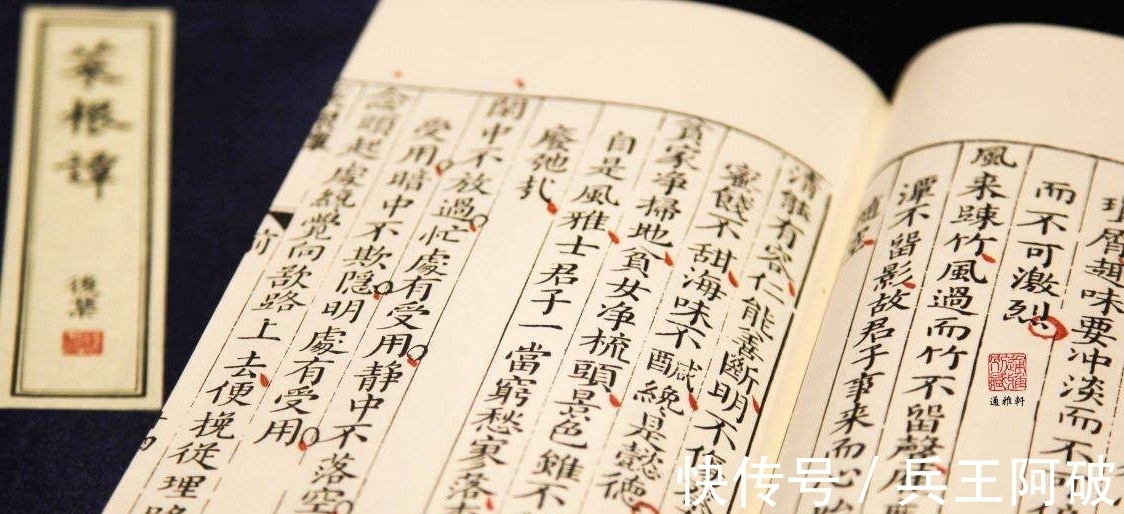 菜根譚
後集
屑趣味要冲淡而不
而不可激烈
風来疎竹風過而竹不留聲
潭不留影故君子事来而心始
清能有容仁能善斷明不傷
蜜餞不甜海味不醎纔是懿德
貧家净掃地貧女净梳頭景色雖不
自是風雅士君子一當窮愁寥落
廢弛扎
閑中不放過忙處有受用静中不落空
受用暗中不欺隠明處有受用
念頭起處纔覺向欲路上去便挽従理路
通雅軒
快传号 / 兵王阿破